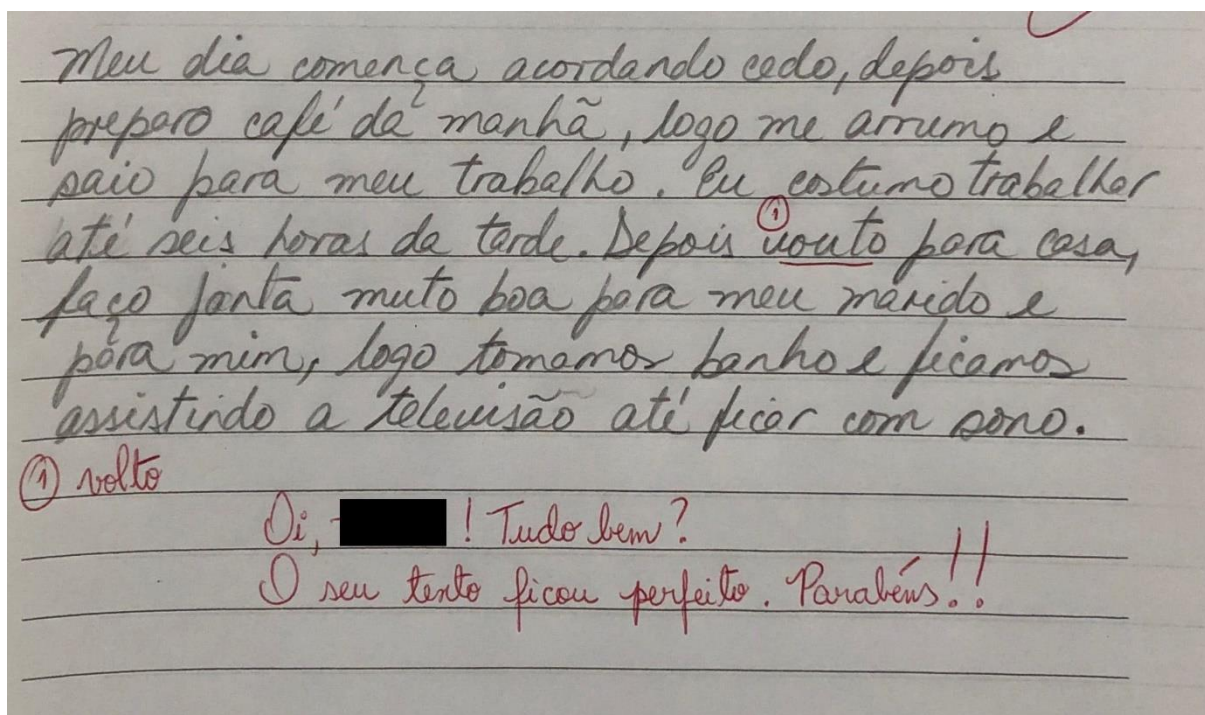 Meu dia comença acordando cedo, depois
preparo café da manhã, logo me arrumo e
saio para meu trabalho. Eu costumo trabalhar
até seis horas da tarde. Depois vouto para casa,
faço janta muto boa para meu marido e
para mim, logo tomamos banho e ficamos
assistindo a televisão até ficar com sono.
① volto
Oi, ! Tudo bem?
O seu texto ficou perfeito. Parabéns!!